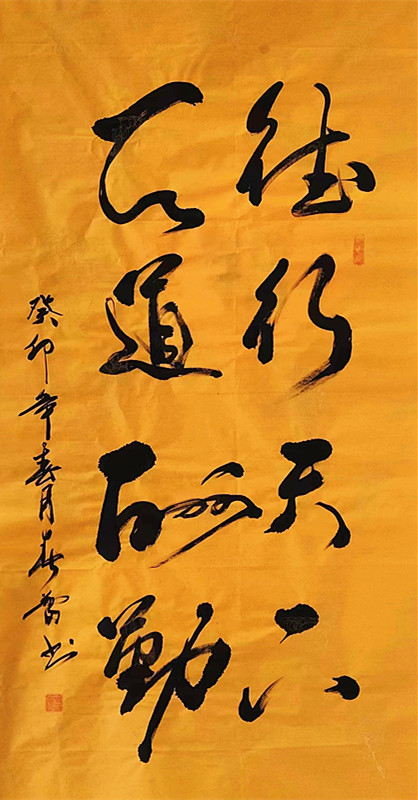 德行天下
天道酬勤
癸卯年春月春雷书